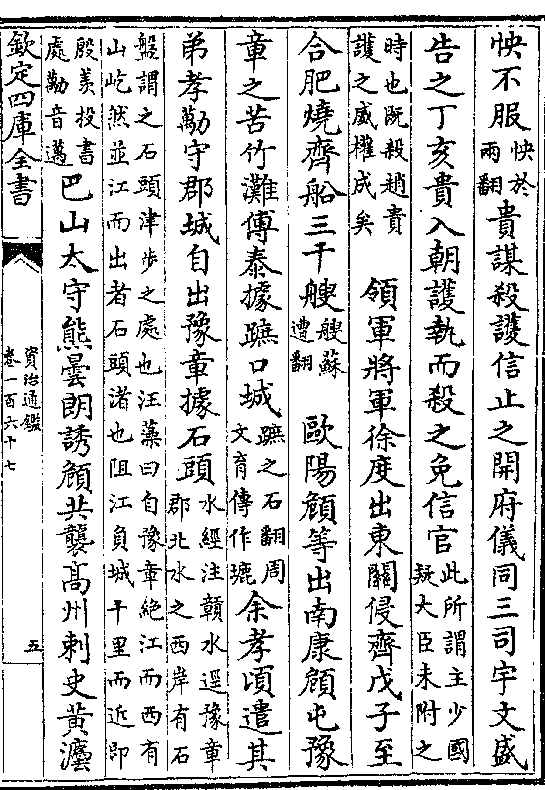 怏不服怏於兩翻貴謀殺護信止之開府儀同三司宇文盛
告之丁亥貴入朝護執而殺之免信官此所謂主少國疑大臣未附之
時也既殺趙貴護之威權成矣 領軍將軍徐度出東關侵齊戊子至
合肥燒齊船三千艘艘蘇遭翻 歐陽頠等出南康頠屯豫
章之苦竹灘傅泰據蹠口城蹠之石翻周文育傳作𧿧余孝頃遣其
弟孝勱守郡城自出豫章據石頭水經注贛水逕豫章郡北水之西岸有石
盤謂之石頭津步之處也汪藻曰自豫章絶江而西有山屹然並江而出者石頭渚也阻江負城十里而近即
殷羡投書處勱音邁巴山太守熊曇朗誘頠共襲高州刺史黃灋
欽定四庫全書
資治通鑑
卷一百六十七
五